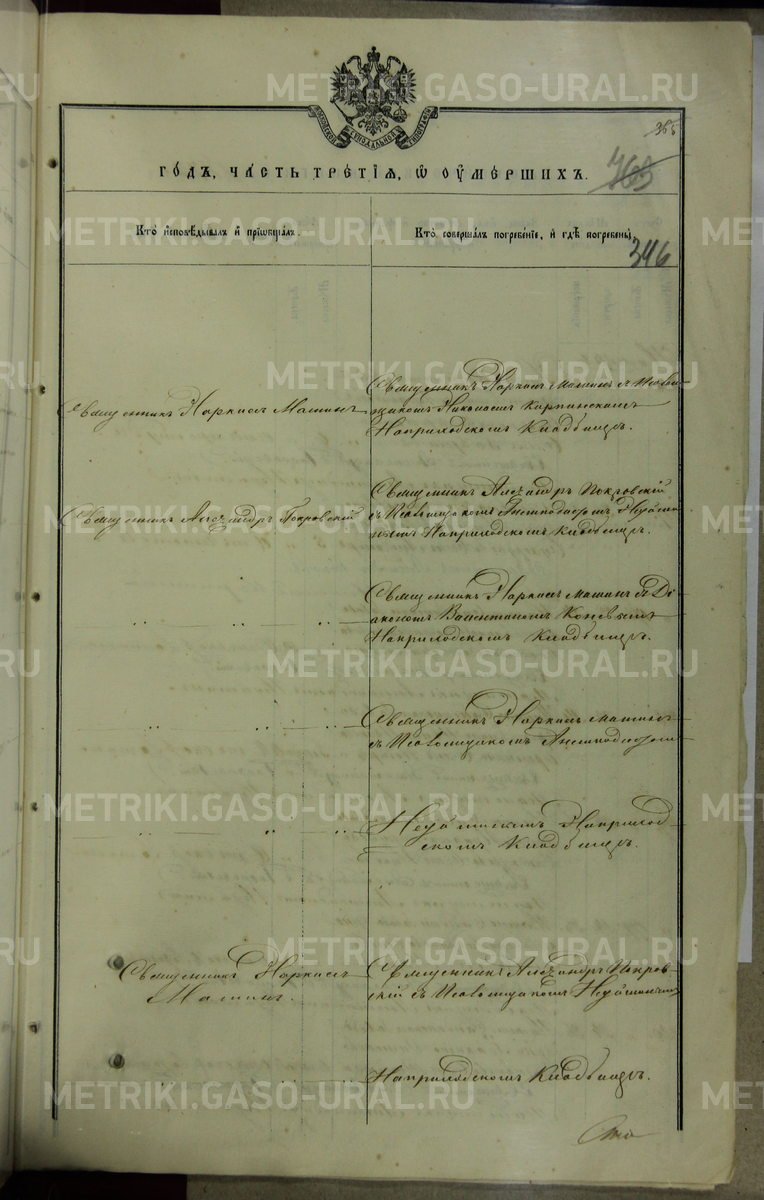 METRIKI.GASO-URAL.RU
МОСКОВСКОЙ СѴНОДАЛЬНОЙ ТИПОГРАФІИ
365
ГОДЪ, ЧАСТЬ ТРЕТІЯ, Ѡ ОУМЕРШИХЪ.
763
Кто исповѣдывалъ и пріобщалъ.
Кто совершалъ погребеніе, и гдѣ погребены,
346
Священникъ Наркисъ Машинъ
Священникъ Наркисъ Машинъ съ Псалом
щикомъ Николаемъ Карпинскимъ
На приходскомъ Кладбищѣ.
Священникъ Александръ Покровскій
Священникъ Александръ Покровскій
съ Псаломщикомъ
На приходскомъ Кладбищѣ.
Священникъ Наркисъ Машинъ съ Ді
акономъ Валентиномъ
На приходскомъ Кладбищѣ.
Священникъ Наркисъ Машинъ
съ Псаломщикомъ
На приход
скомъ Кладбищѣ.
Священникъ Наркисъ
Машинъ.
Священникъ Александръ Покров
скій съ Псаломщикомъ
На приходскомъ Кладбищѣ.